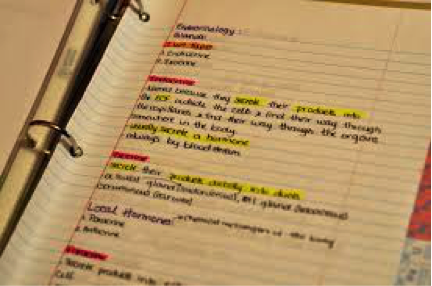 Endocrinology:
Glands:
Two types
1. Endocrine
2. Exocrine
Endocrine
because they secrete their products into
the ECF outside the cells & find their way through
the capillaries & find their way through the organs
somewhere in the body.
usually secrete a hormone
always by bloodstream
Exocrine
secrete their products directly into ducts
sweat gland GI gland
Local Hormones: chemical messengers of the body
1. Paracrine
2. Autocrine
secrete products into